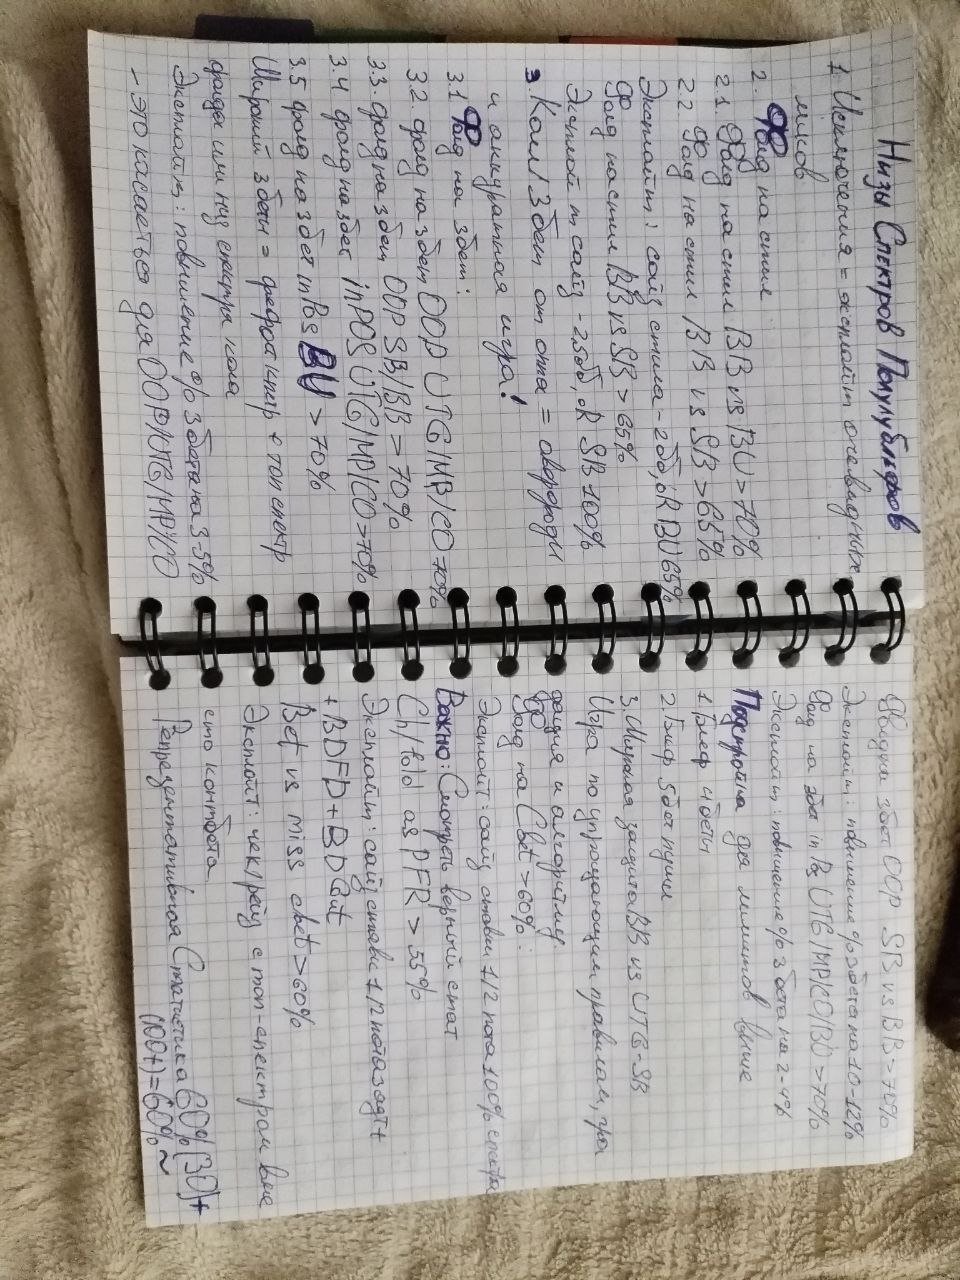 Низы Спектров Полублефов
1. Исключения = эксплойт очевидных
мисов
2. Фолд на стил
2.1. Фолд на стил BB vs BU > 70%
2.2. Фолд на стил BB vs SB > 65%
Эксплойт: сайз стила - 2бб, oR BU 65%
Фолд на стил BB vs SB > 65%
Эксплойт сайз - 2.5бб, oR SB 100%
3. Колл 3бет от опта =
и аккуратная игра!
3.1 Фолд на 3бет:
3.2. фолд на 3бет OOP UTG/MP/CO 70%
3.3. фолд на 3бет OOP SB/BB > 70%
3.4 фолд на 3бет inPOS UTG/MP/CO > 70%
3.5 фолд на 3бет inPos BU > 70%
Широкий 3бет = + топ спектр
или низ спектра кола
Эксплойт: повышение % 3бета на 3-5%
- это касается для OOP UTG/MP/CO
3бет OOP SB vs BB > 70%
Эксплойт: повышение % 3бета на 10-12%
Фолд на 3бет in Pos UTG/MP/CO/BU > 70%
Эксплойт: повышение % 3бета на 2-4%
Подстройка для лимитов выше
1 Блеф 4бет
2. Блеф 3бет пуши
3. Широкая защита BB vs UTG-SB
Игра по упрощающим правилам, про
и алгоритму
Фолд на Cbet > 60%:
Эксплойт: сайз ставки 1/2 пота 100% спектра
Важно: Смотреть верный стат
Ch/fold as PFR > 55%
Эксплойт: сайз ставки 1/2 пота +
+ BDFD + BDGut
Bet vs miss cbet > 60%
Эксплойт: чек/рейз с топ-спектром вме
сто контбета
Репрезентативная Статистика 60% (30) +
(100+) = 60% ~